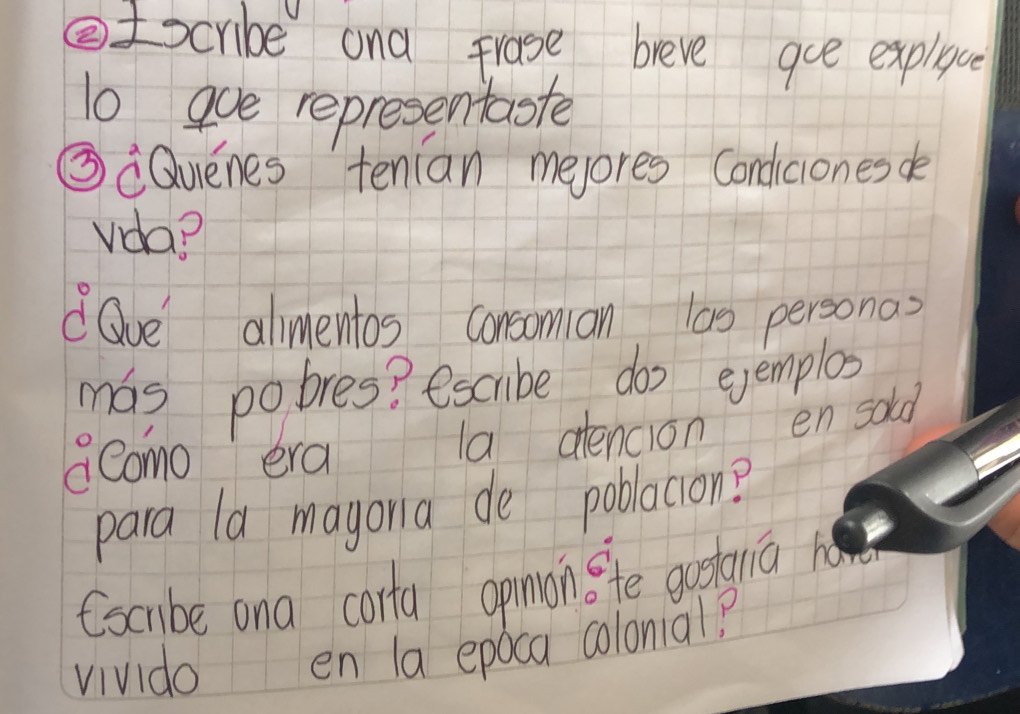 ② Escribe una frase breve que explique
lo que representaste
③ ¿Quiénes tenían mejores Condiciones de
vida?
¿Qué alimentos consomian las personas
más pobres? escribe dos ejemplos
¿Cómo éra la atencion en salud
para la mayoria de poblacion?
Escribe una corta opinión ¿te gustaría haver
vivido en la epoca colonial?